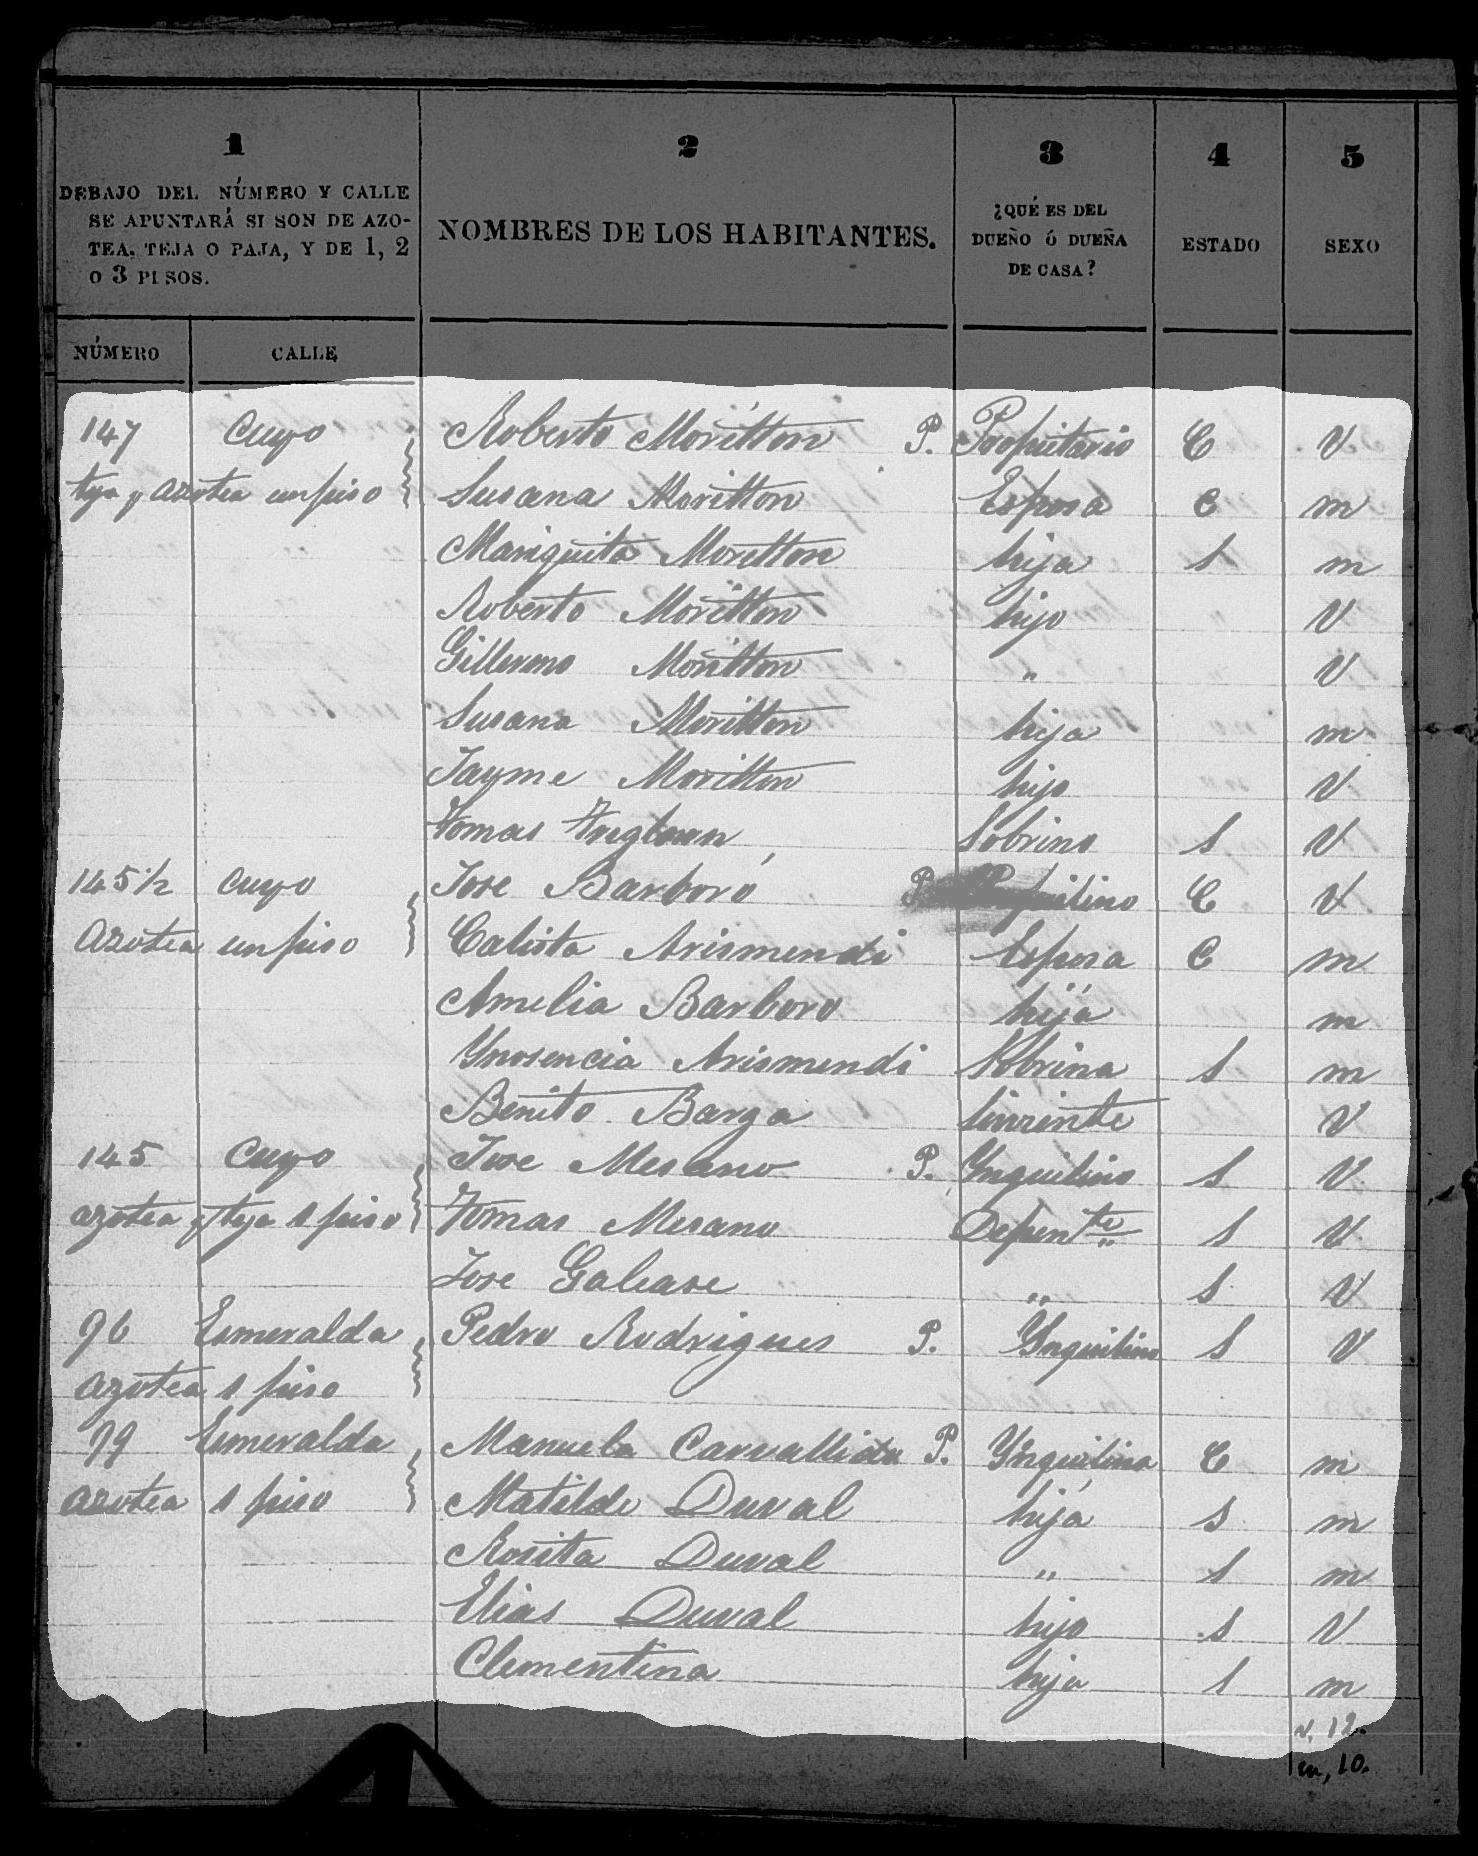 1 2 3 4 5
DEBAJO DEL NÚMERO Y CALLE
SE APUNTARÁ SI SON DE AZO-
TEA, TEJA O PAJA, Y DE 1, 2
O 3 PISOS.
NOMBRES DE LOS HABITANTES.
¿QUÉ ES DEL
DUEÑO Ó DUEÑA
DE CASA?
ESTADO
SEXO
NÚMERO CALLE
147 Cuyo Roberto Moritton P. Propietario C V
teja y azotea un piso Susana Moritton Esposa C m
Mariquita Moritton hija S m
Roberto Moritton hijo V
Gillermo Moritton " V
Susana Moritton hija m
Jayme Moritton hijo V
Tomas Sobrino S V
145 1/2 Cuyo Jose Barboró P. C V
Azotea un piso Calista Arismendi Esposa C m
Amelia Barboro hija m
Ynosencia Arismendi Sobrina S m
Benito Barga V
145 Cuyo Jose Mesano P. Ynquilino S V
azotea y teja 1 piso Tomas Mesano Depente S V
Jose Galease " S V
96 Esmeralda Pedro Rodrigues P. Ynquilino S V
azotea 1 piso
99 Esmeralda Manuela P. Ynquilina C m
azotea 1 piso Matilde Duval hija S m
Rosita Duval " S m
Elias Duval hijo S V
Clementina hija S m
v, 12.
m, 10.